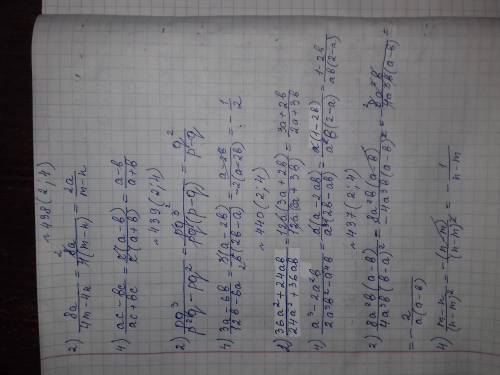 ~438 (2; 4)
2) 8a/(4m-4n) = 8a/(4(m-n)) = 2a/(m-n)
4) (ac-bc)/(ac+bc) = c(a-b)/(c(a+b)) = (a-b)/(a+b)
~439 (2; 4)
2) pq³/(p²q-pq²) = pq³/(pq(p-q)) = q²/(p-q)
4) (3a-6b)/(12b-6a) = 3(a-2b)/(6(2b-a)) = (a-2b)/(-2(a-2b)) = -1/2
~440 (2; 4)
2) (36a²+24ab)/(24a²+36ab) = 12a(3a+2b)/(12a(2a+3b)) = (3a+2b)/(2a+3b)
4) (a³-2a²b)/(2a³b²-a⁴b) = = a(1-2b)/(a²b(2-a)) = (1-2b)/(ab(2-a))
~437 (2; 4)
2) 8a²b(a-b)/(4a³b(b-a)²) = 8a²b(a-b)/(-4a³b(a-b)²) = -8a²b/(4a³b(a-b)) =
= -2/(a(a-b))
4) (m-n)/(n-m)² = -(n-m)/(n-m)² = -1/(n-m)